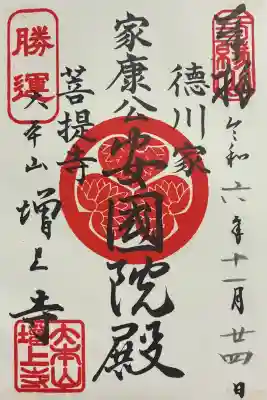 奉拝
令和六年十一月廿四日
徳川家
安國院殿
家康公
菩提寺
勝運
大本山
増上寺
大本山
増上寺